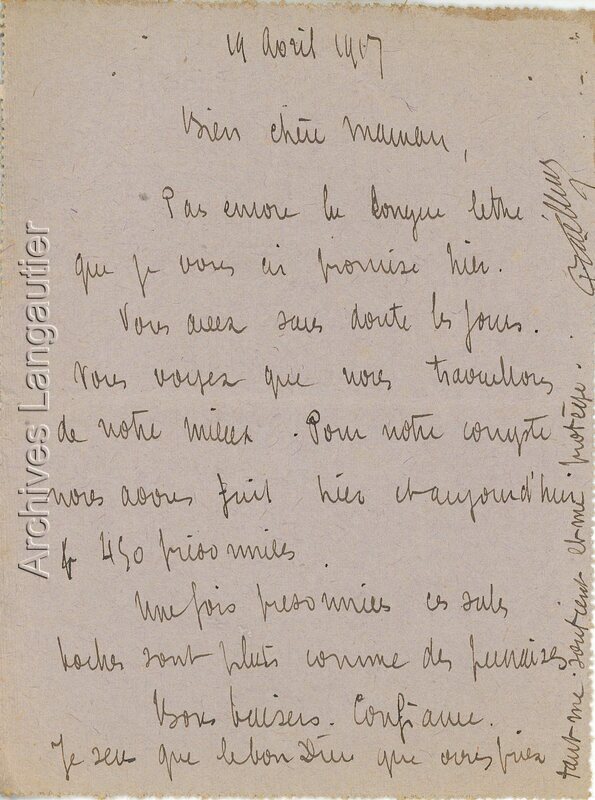 19 Avril 1917
Bien chère maman,
Pas encore la longue lettre
que je vous ai promise hier.
Vous avez sans doute les jours.
Vous voyez que nous travaillons
de notre mieux. Pour notre compte
nous avons fait hier et aujourd'hui
450 prisonniers
Une fois prisonniers ces sales
boches sont plats comme des punaises
Bons baisers. Confiance.
Je sens que le bon Dieu que vous priez
tant me soutient et me protège.
Archives Langautier